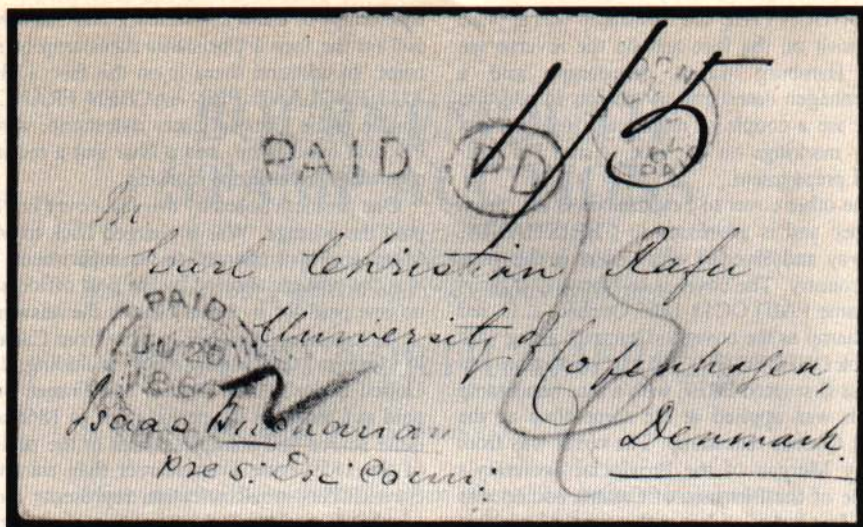 1/5
PAID PD
PAID
M
Carl Christian Rafn
University of
Copenhagen,
Denmark.
PAID
JU 20
1864
2
Isaac Buchanan
Pres: Exe: Coun: